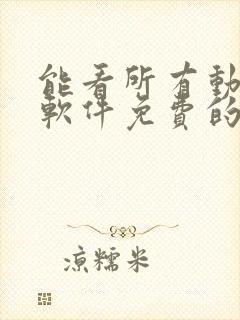 能看所有動
軟件免費的
涼糯米